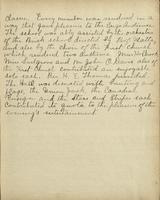 Every number was rendered in a
way that gave pleasure to the large audience.
The school was ably assisted by the orchestra
of the Parish school directed by
and also by the choir of the First Church
which rendered two anthems. Miss
Miss and Mr John O. Evans also of
the First Church contributed an enjoyable
solo each. Rev. H. E. Thomas presided.
The Hall was decorated with bunting and
flags, the Union Jack, the Canadian
Ensign and the Stars and Stripes each
contributed its quota to the pleasure of the
evening's entertainment.